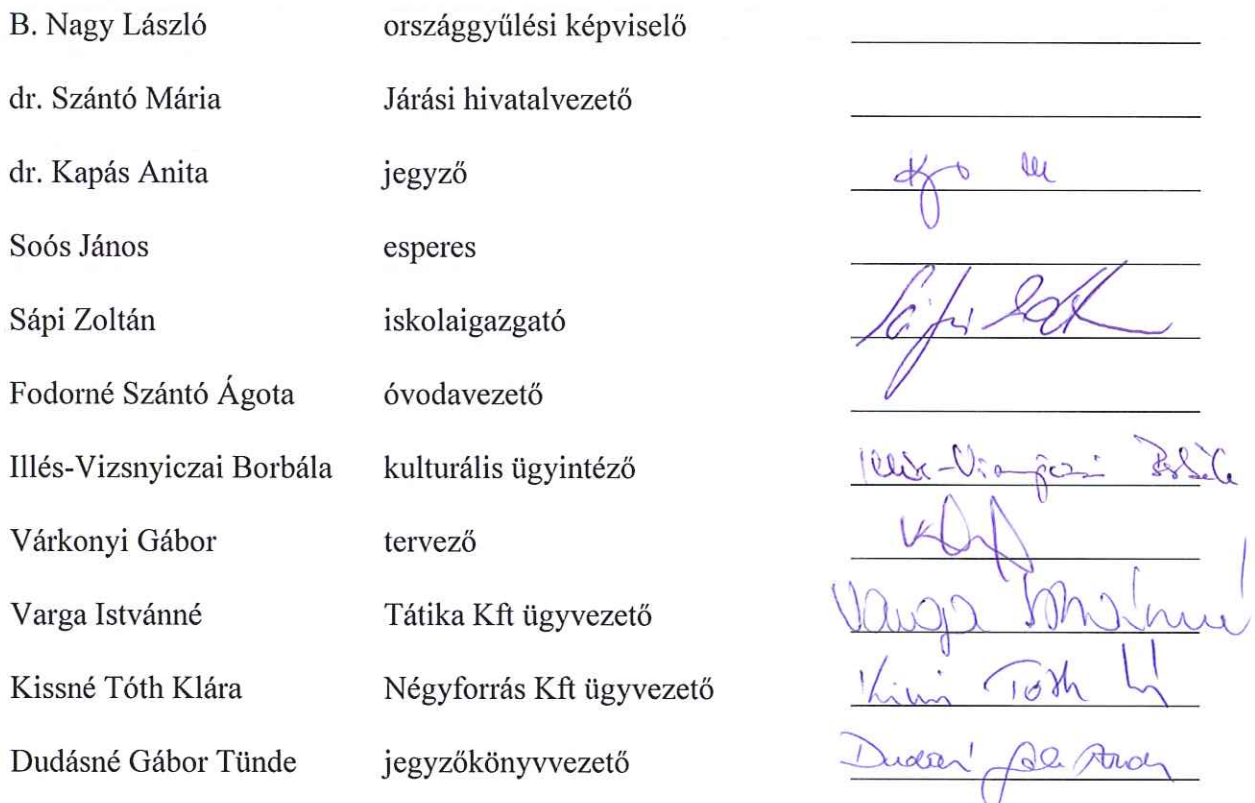 B. Nagy László országgyűlési képviselő
dr. Szántó Mária Járási hivatalvezető
dr. Kapás Anita jegyző
Soós János esperes
Sápi Zoltán iskolaigazgató Sápi Zolt
Fodorné Szántó Ágota óvodavezető
Illés-Vizsnyiczai Borbála kulturális ügyintéző Illés-Vizsnyiczai Borbála
Várkonyi Gábor tervező
Varga Istvánné Tátika Kft ügyvezető Varga Istvánné
Kissné Tóth Klára Négyforrás Kft ügyvezető Tóth
Dudásné Gábor Tünde jegyzőkönyvvezető